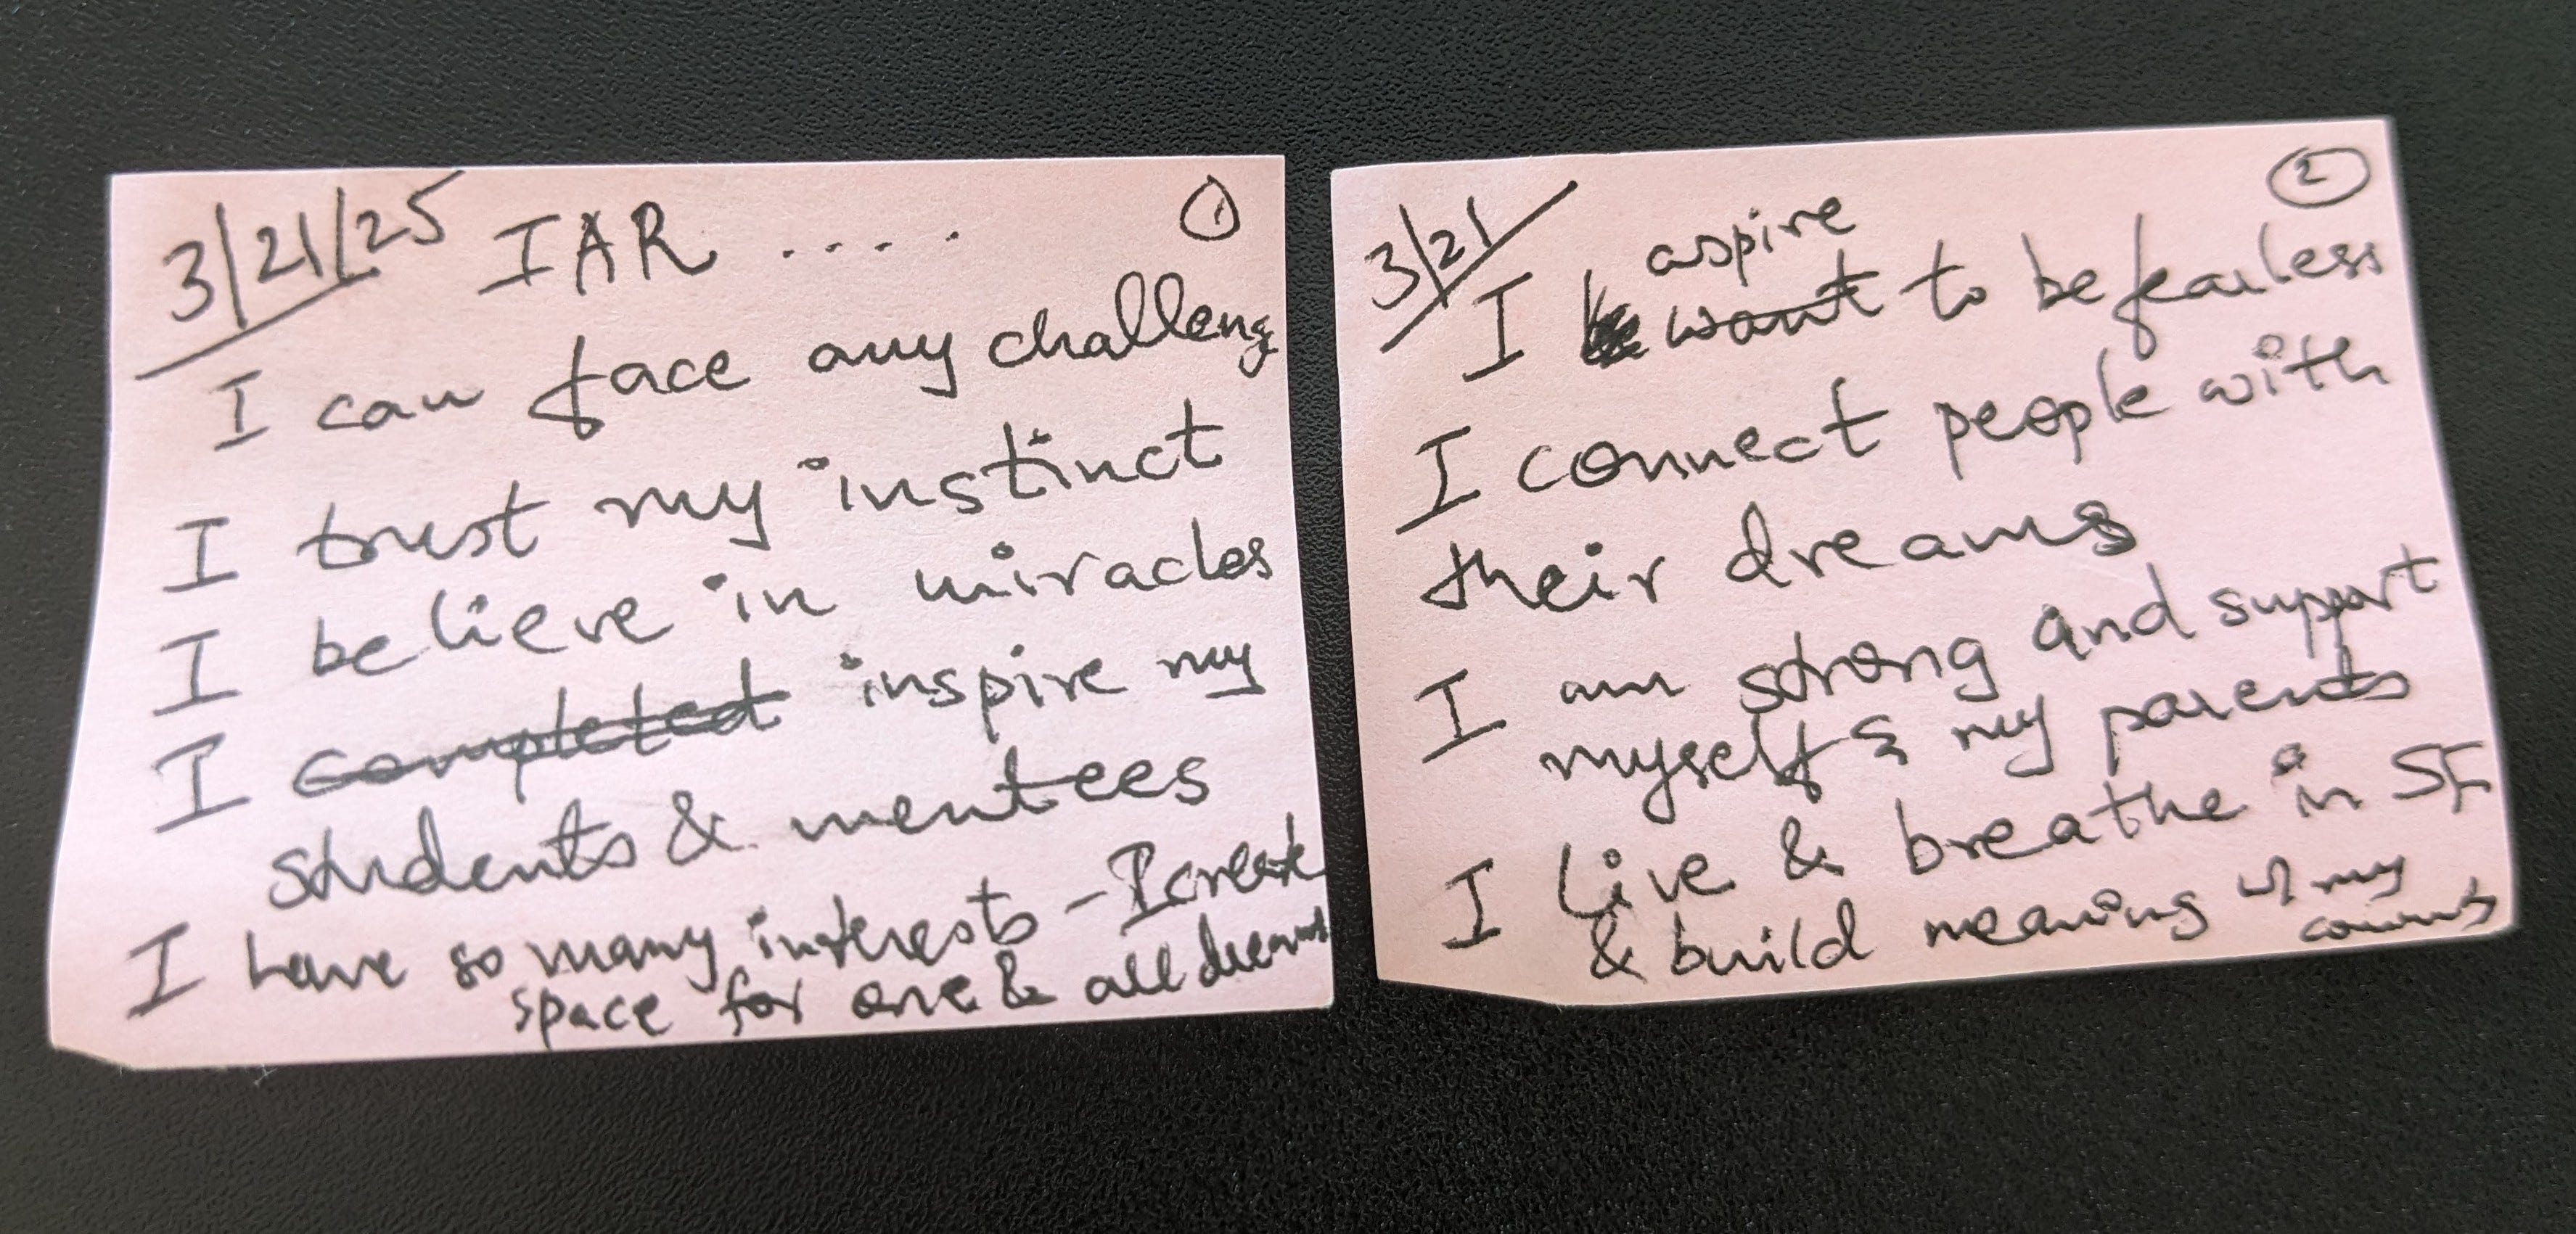 3/21/25 IAR .... 1
I can face any challeng
I trust my instinct
I believe in miracles
I completed inspire my
students & mentees
I have so many interests - I create
space for one & all dreams
3/21 2
aspire
I want to be fearless
I connect people with
their dreams
I am strong and support
myself & my parents
I live & breathe in SF
& build meaning w my